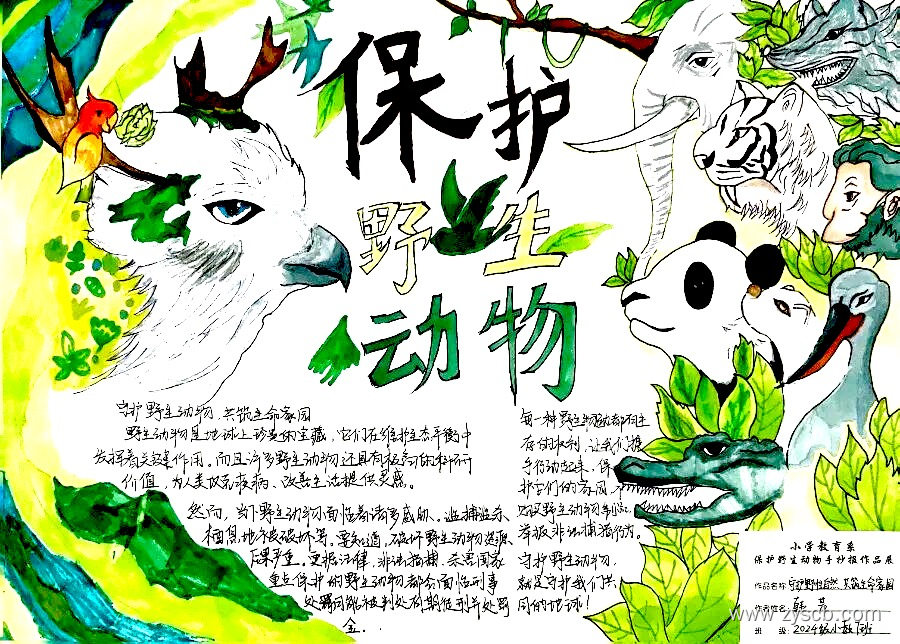 保护
野生
动物
守护野生动物，共筑生命家园
野生动物是地球上珍贵的宝藏，它们在维护生态平衡中
发挥着关键作用。而且许多野生动物还具有极高的科研
价值，为人类攻克疾病、改善生活提供灵感。
然而，当下野生动物面临着诸多威胁。盗捕盗杀
栖息地被破坏等。要知道，破坏野生动物资源
后果严重。根据法律，非法捕猎、杀害国家
重点保护的野生动物都会面临刑事
处罚可能被判处有期徒刑并处罚
金.
每一种野生动物都有生
存的权利，让我们携
手行动起来，保
护它们的家园
举报非法捕猎行为。
守护野生动物，
就是守护我们共
同的地球！
小学教育系
保护野生动物手抄报作品展
作品名称：守护野性自然 共筑生命家园
作者姓名：
班 级 2024级小教1班
www.zyscb.com